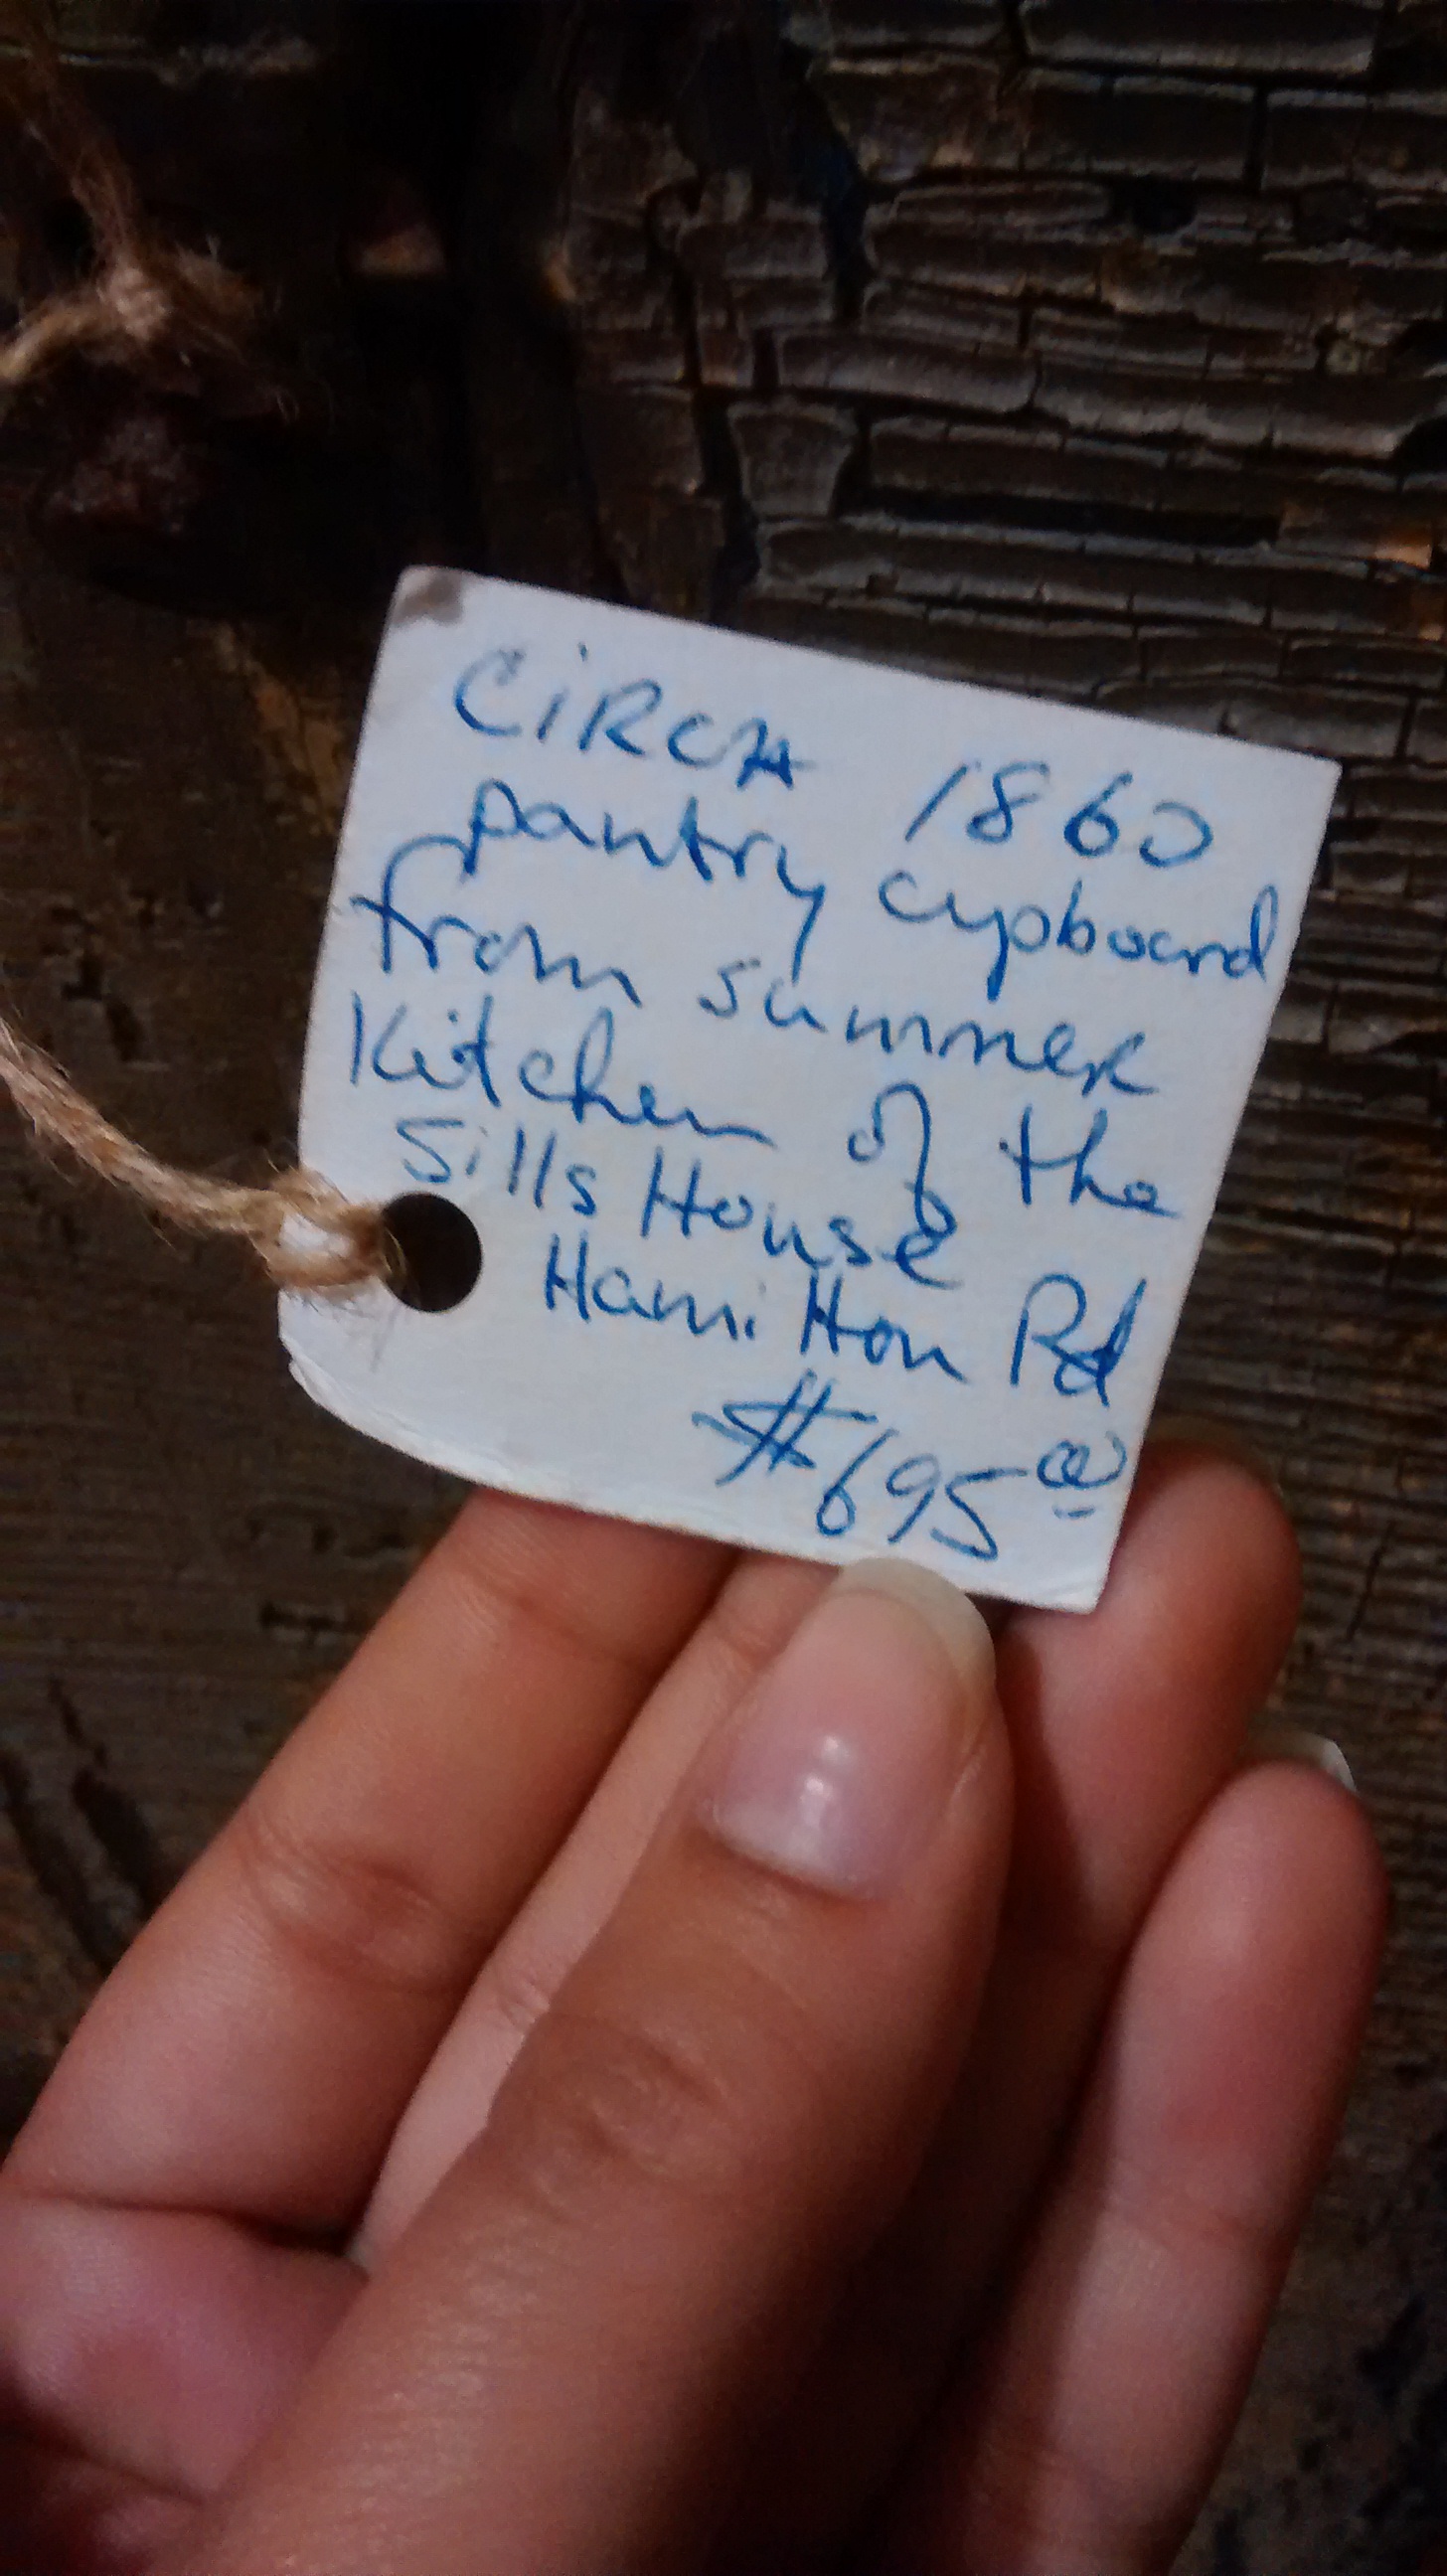 CiRCA 1860
pantry cupboard
from summer
Kitchen of the
Sills House
Hamilton Rd
$695 00